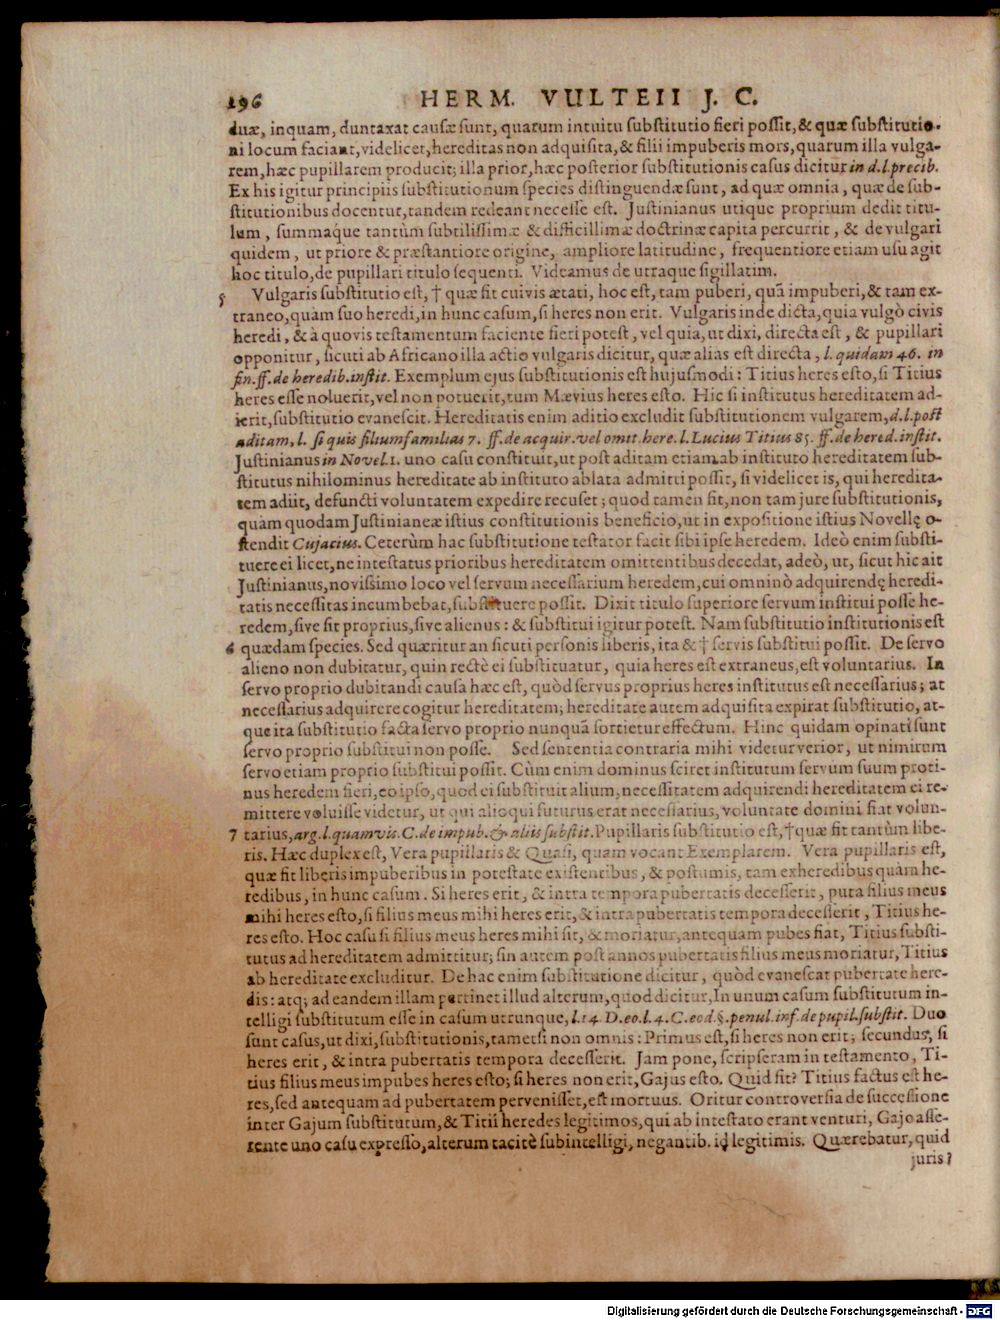 196 HERM. VULTEII J. C.
duæ, inquam, duntaxat causæ sunt, quarum intuitu substitutio fieri possit, & quæ substitutio-
ni locum faciant, videlicet, hereditas non adquisita, & filii impuberis mors, quarum illa vulga-
rem, hæc pupillarem producit; illa prior, hæc posterior substitutionis casus dicitur in d.l. precib.
Ex his igitur principiis substitutionum species distinguendæ sunt, ad quæ omnia, quæ de sub-
stitutionibus docentur, tandem redeant necesse est. Justinianus utique proprium dedit titu-
lum, summaque tantùm subtilissimæ & difficillimæ doctrinæ capita percurrit, & de vulgari
quidem, ut priore & præstantiore origine, ampliore latitudine, frequentiore etiam usu agit
hoc titulo, de pupillari titulo sequenti. Videamus de utraque sigillatim.
5 Vulgaris substitutio est, † quæ fit cuivis ætati, hoc est, tam puberi, quā impuberi, & tam ex-
traneo, quàm suo heredi, in hunc casum, si heres non erit. Vulgaris inde dicta, quia vulgò civis
heredi, & à quovis testamentum faciente fieri potest, vel quia, ut dixi, directa est, & pupillari
opponitur, sicuti ab Africano illa actio vulgaris dicitur, quæ alias est directa, l. quidam 46. in
fin. ff. de heredib. instit. Exemplum ejus substitutionis est hujusmodi: Titius heres esto, si Titius
heres esse noluerit, vel non potuerit, tum Mævius heres esto. Hic si institutus hereditatem ad-
ierit, substitutio evanescit. Hereditatis enim aditio excludit substitutionem vulgarem, d.l. post
aditam, l. si quis filiumfamilias 7. ff. de acquir. vel omit. here. l. Lucius Titius 85. ff. de hered. instit.
Justinianus in Novel. 1. uno casu constituit, ut post aditam etiam ab instituto hereditatem sub-
stitutus nihilominus hereditate ab instituto ablata admitti possit, si videlicet is, qui heredita-
tem adiit, defuncti voluntatem expedire recuset; quod tamen fit, non tam jure substitutionis,
quàm quodam Justinianeæ istius constitutionis beneficio, ut in expositione istius Novellę o-
stendit Cujacius. Ceterùm hac substitutione testator facit sibi ipse heredem. Ideò enim substi-
tuere ei licet, ne intestatus prioribus hereditatem omittentibus decedat, adeò, ut, sicut hic ait
Justinianus, novissimo loco vel servum necessarium heredem, cui omninò adquirendę heredi-
tatis necessitas incumbebat, substituere possit. Dixit titulo superiore servum institui posse he-
redem, sive sit proprius, sive alienus: & substitui igitur potest. Nam substitutio institutionis est
6 quædam species. Sed quæritur an sicuti personis liberis, ita & † servis substitui possit. De servo
alieno non dubitatur, quin rectè ei substituatur, quia heres est extraneus, est voluntarius. In
servo proprio dubitandi causa hæc est, quòd servus proprius heres institutus est necessarius; at
necessarius adquirere cogitur hereditatem; hereditate autem adquisita expirat substitutio, at-
que ita substitutio facta servo proprio nunquā sortietur effectum. Hinc quidam opinati sunt
servo proprio substitui non posse. Sed sententia contraria mihi videtur verior, ut nimirum
servo etiam proprio substitui possit. Cùm enim dominus sciret institutum servum suum proti-
nus heredem fieri, eo ipso, quod ei substituit alium, necessitatem adquirendi hereditatem ei re-
mittere voluisse videtur, ut qui alioqui futurus erat necessarius, voluntate domini fiat volun-
7 tarius, arg. l. quamvis. C. de impub. & aliis substit. Pupillaris substitutio est, † quæ fit tantùm libe-
ris. Hæc duplex est, Vera pupillaris & Quasi, quam vocant Exemplarem. Vera pupillaris est,
quæ fit liberis impuberibus in potestate existentibus, & postumis, tam exheredibus quàm he-
redibus, in hunc casum. Si heres erit, & intra tempora pubertatis decesserit, puta filius meus
mihi heres esto, si filius meus mihi heres erit, & intra pubertatis tempora decesserit, Titius he-
res esto. Hoc casu si filius meus heres mihi sit, & moriatur, antequam pubes fiat, Titius substi-
tutus ad hereditatem admittitur; sin autem post annos pubertatis filius meus moriatur, Titius
ab hereditate excluditur. De hac enim substitutione dicitur, quòd evanescat pubertate here-
dis: atq; ad eandem illam pertinet illud alterum, quod dicitur, In unum casum substitutum in-
telligi substitutum esse in casum utrunque, l. 14 D. eo. l. 4. C. eod. §. penul. inf. de pupil. substit. Duo
sunt casus, ut dixi, substitutionis, tametsi non omnis: Primus est, si heres non erit; secundus, si
heres erit, & intra pubertatis tempora decesserit. Jam pone, scripseram in testamento, Ti-
tius filius meus impubes heres esto; si heres non erit, Gajus esto. Quid fit? Titius factus est he-
res, sed antequam ad pubertatem pervenisset, est mortuus. Oritur controversia de successione
inter Gajum substitutum, & Titii heredes legitimos, qui ab intestato erant venturi, Gajo asse-
rente uno casu expresso, alterum tacitè subintelligi, negantib. id legitimis. Quærebatur, quid
juris?
Digitalisierung gefördert durch die Deutsche Forschungsgemeinschaft - DFG